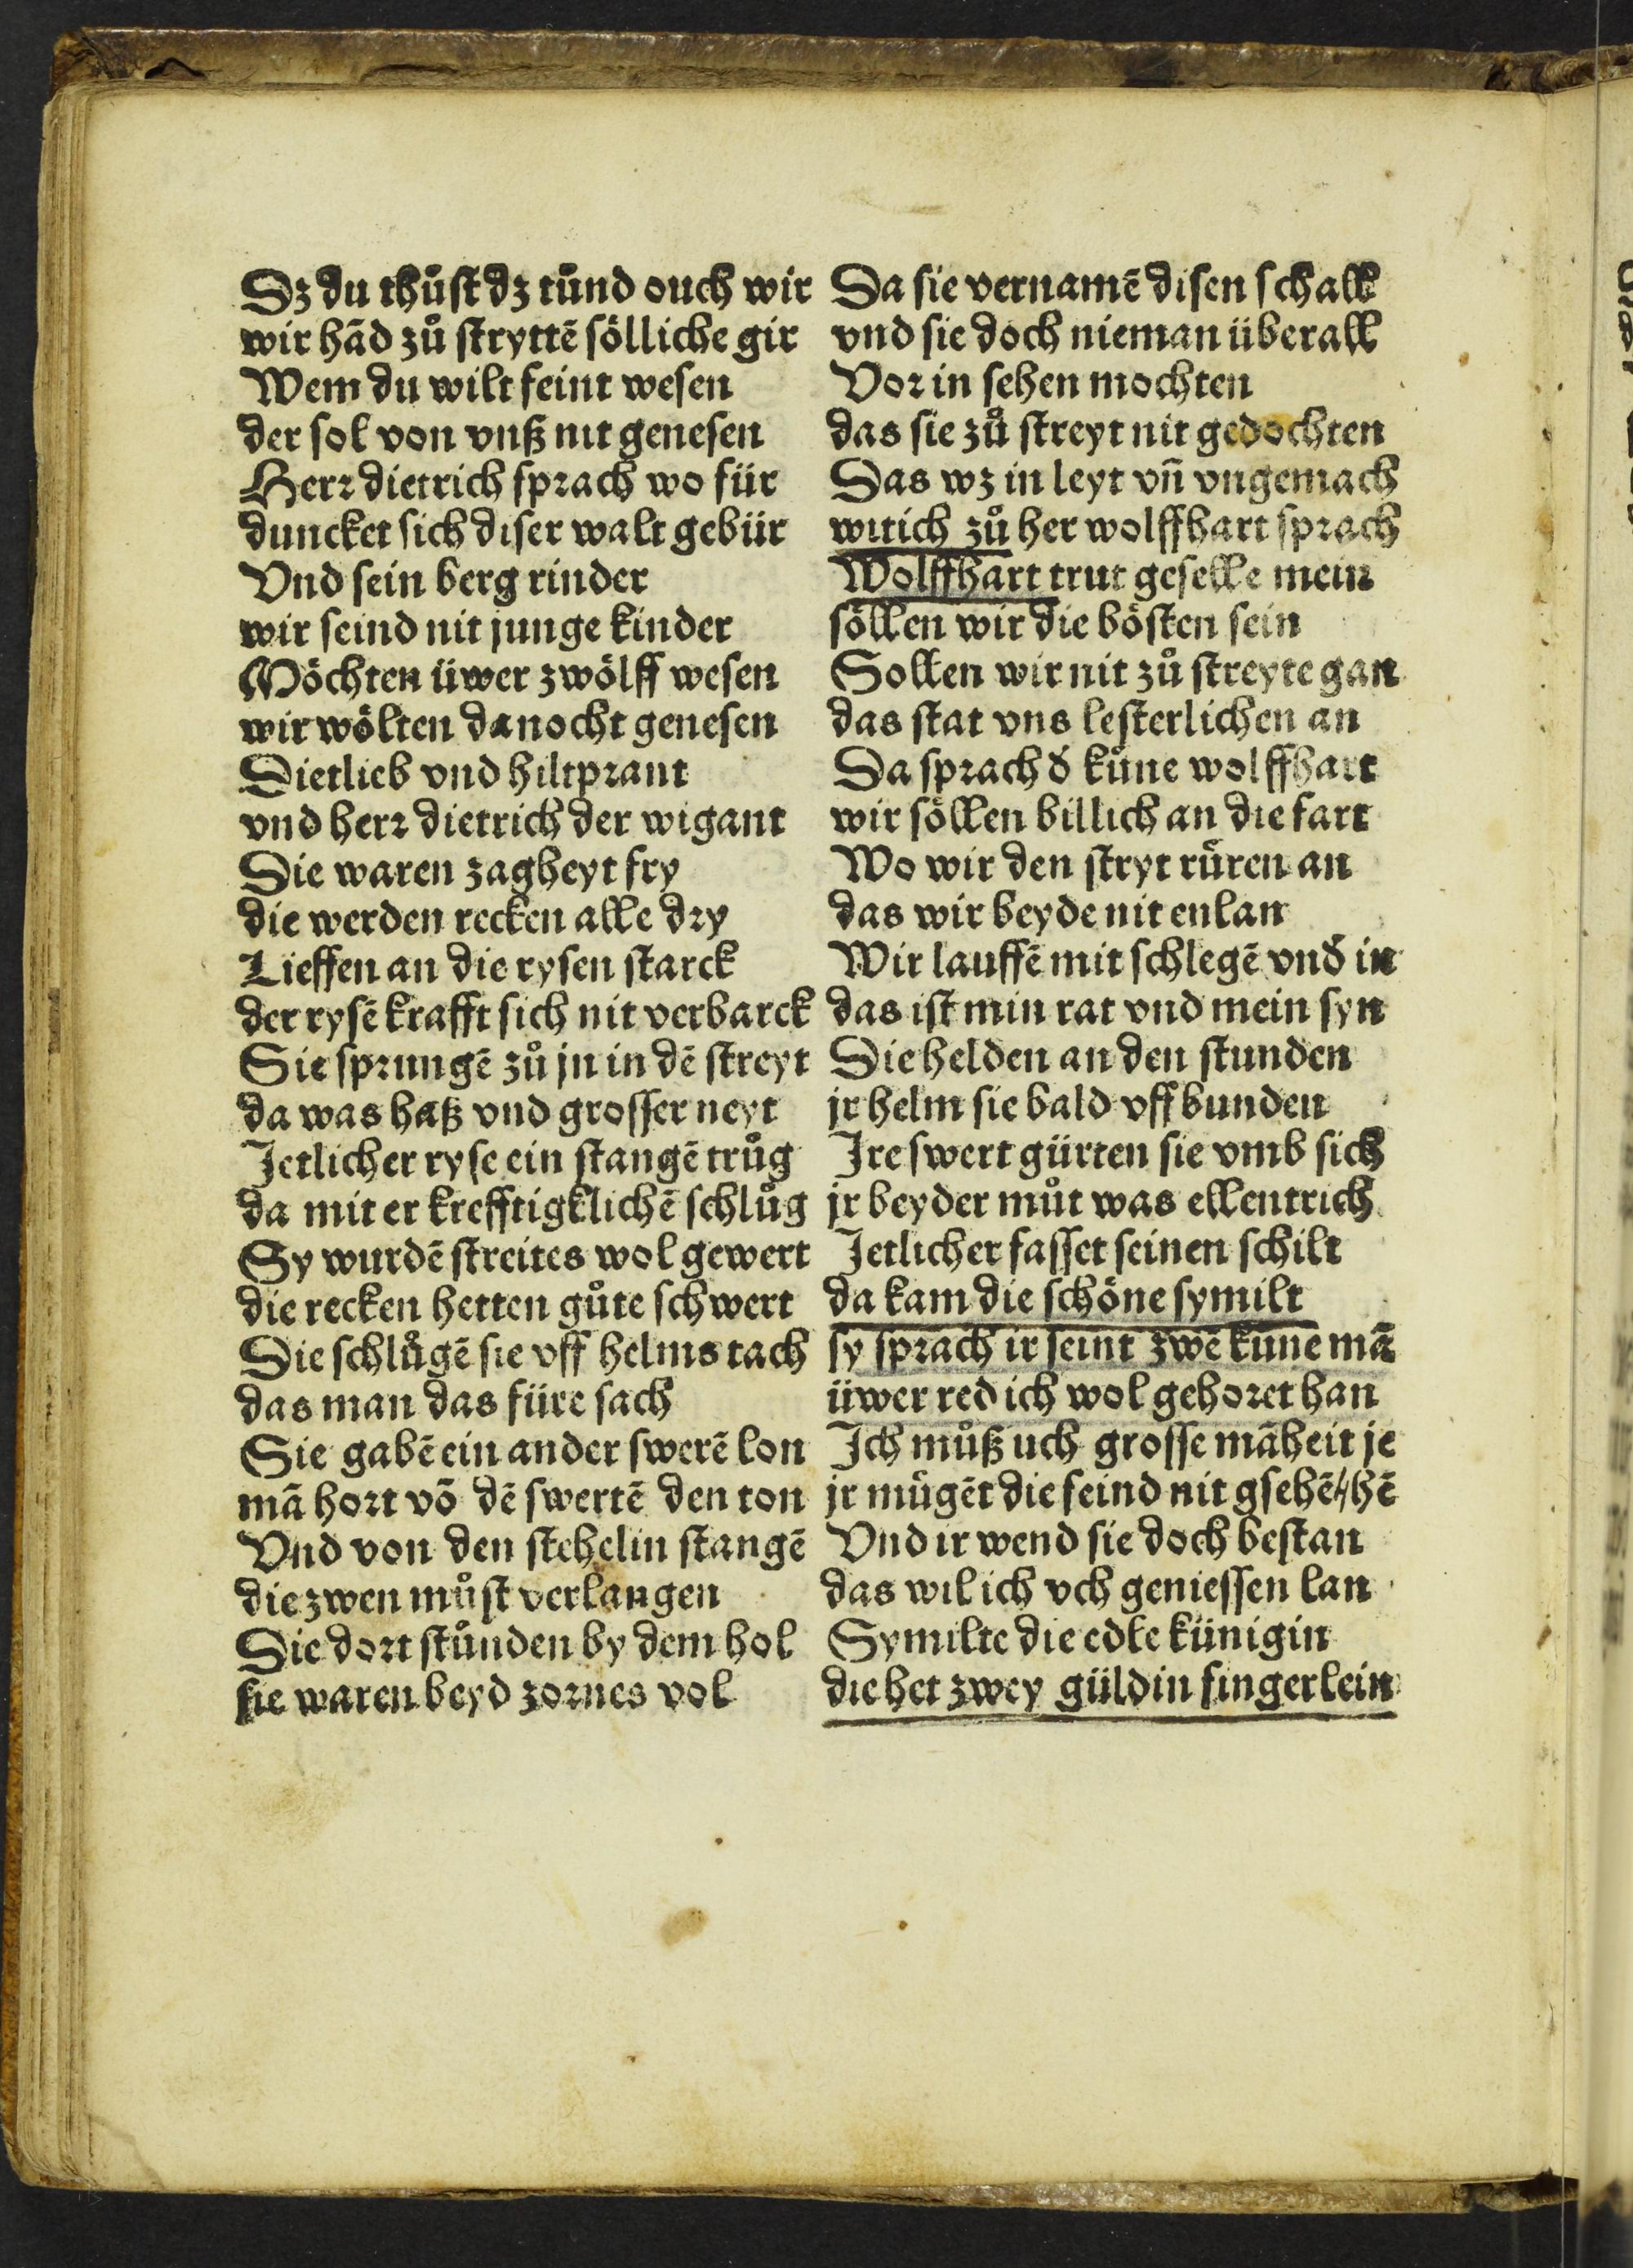 Dz du thůst dz tůnd ouch wir
wir hād zů stryttē sölliche gir
Wem du wilt feint wesen
der sol von vnß nit genesen
Herr dietrich sprach wo für
duncket sich diser walt gebür
Vnd sein berg rinder
wir seind nit junge kinder
Möchten üwer zwölff wesen
wir wölten danocht genesen
Dietlieb vnd hiltprant
vnd herr dietrich der wigant
Die waren zagheyt fry
die werden recken alle dry
Lieffen an die rysen starck
der rysē krafft sich nit verbarck
Sie sprungē zů jn in dē streyt
da was haß vnd grosser neyt
Jetlicher ryse ein stangē trůg
da mit er krefftigklichē schlůg
Sy wurdē streites wol gewert
die recken hetten gůte schwert
Die schlůgē sie vff helms tach
das man das füre sach
Sie gabē ein ander swerē lon
mā hort vō dē swertē den ton
Vnd von den stehelin stangē
die zwen můst verlangen
Die dort stůnden by dem hol
sie waren beyd zornes vol
Da sie vernamē disen schall
vnd sie doch nieman überall
Vor in sehen mochten
das sie zů streyt nit gedochten
Das wz in leyt vn̄ vngemach
witich zů her wolffhart sprach
Wolffhart trut geselle mein
söllen wir die bösten sein
Sollen wir nit zů streyte gan
das stat vns lesterlichen an
Da sprach d̓ kůne wolffhart
wir söllen billich an die fart
Wo wir den stryt rüren an
das wir beyde nit enlan
Wir lauffē mit schlegē vnd̓ in
das ist min rat vnd mein syn
Die helden an den stunden
jr helm sie bald vff bunden
Jre swert gürten sie vmb sich
jr beyder můt was ellentrich
Jetlicher fasset seinen schilt
da kam die schöne symilt
sy sprach ir seint zwē kune mā
üwer red ich wol gehoret han
Ich můß uch grosse māheit je
jr mügēt die feind nit gsehē//hē
Vnd ir wend sie doch bestan
das wil ich vch geniessen lan
Symilte die edle künigin
die het zwey güldin fingerlein